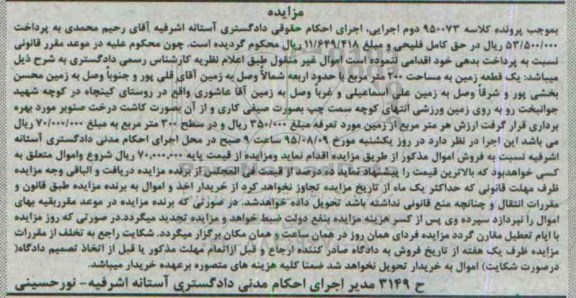 مزایده
بموجب پرونده کلاسه ۹۵۰۰۷۳ دوم اجرایی، اجرای احکام حقوقی دادگستری آستانه اشرفیه آقای رحیم محمدی به پرداخت
۵۳/۵۰۰/۰۰۰ ریال در حق کامل فلیحی و مبلغ ۱۱/۶۴۹/۴۱۸ ریال محکوم گردیده است. چون محکوم علیه در موعد مقرر قانونی
نسبت به پرداخت بدهی خود اقدامی ننموده است اموال غیر منقول طبق اعلام نظریه کارشناس رسمی دادگستری به شرح ذیل
میباشد: یک قطعه زمین به مساحت ۲۰۰ متر مربع با حدود اربعه شمالاً وصل به زمین آقای قلی پور و جنوباً وصل به زمین محسن
بخشی پور و شرقاً وصل به زمین علی اسماعیلی و غرباً وصل به زمین آقا عاشوری واقع در روستای کینچاه در کوچه شهید
جوانبخت رو به روی زمین ورزشی انتهای کوچه سمت چپ بصورت صیفی کاری و از آن بصورت کاشت درخت صنوبر مورد بهره
برداری قرار گرفت ارزش هر متر مربع از زمین مورد تعرفه مبلغ ۳۵۰/۰۰۰ ریال و در سطح ۲۰۰ متر مربع به مبلغ ۷۰/۰۰۰/۰۰۰ ریال
می باشد این اجرا در نظر دارد در روز یکشنبه مورخ ۹۵/۰۸/۰۹ ساعت ۹ صبح در محل اجرای احکام مدنی دادگستری آستانه
اشرفیه نسبت به فروش اموال مذکور از طریق مزایده اقدام نماید ومزایده از قیمت پایه ۷۰,۰۰۰,۰۰۰ ریال شروع واموال متعلق به
کسی خواهدبود که بالاترین قیمت را پیشنهاد نماید ده درصد از قیمت فی المجلس از برنده مزایده دریافت و الباقی وجه مزایده
ظرف مهلت قانونی که حداکثر یک ماه از تاریخ مزایده تجاوز نخواهد کرد از خریدار اخذ و اموال به برنده مزایده طبق قانون و
مقررات انتقال و چنانچه منع قانونی نداشته باشد تحویل داده خواهدشد. در صورتی که برنده مزایده در موعد مقرربقیه بهای
اموال را نپردازد سپرده وی پس از کسر هزینه مزایده بنفع دولت ضبط خواهد و مزایده تجدید میگردد.در صورتی که روز مزایده
با ایام تعطیل مقارن گردد مزایده فردای همان روز در همان ساعت و همان مکان برگزار میگردد. شکایت راجع به تخلف از مقررات
مزایده ظرف یک هفته از تاریخ فروش به دادگاه صادر کننده ارجاع و قبل ازاتمام مهلت مذکور یا قبل از اتخاذ تصمیم دادگاه(
درصورت شکایت) اموال به خریدار تحویل نخواهد شد ضمنا کلیه هزینه های متصوره برعهده خریدار میباشد.
ح ۳۱۴۹ مدیر اجرای احکام مدنی دادگستری آستانه اشرفیه- نورحسینی